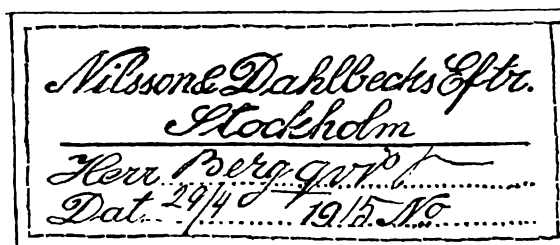 Nilsson & Dahlbecks Eftr.
Stockholm
Herr Bergqvist
Dat. 29/4 1915 No